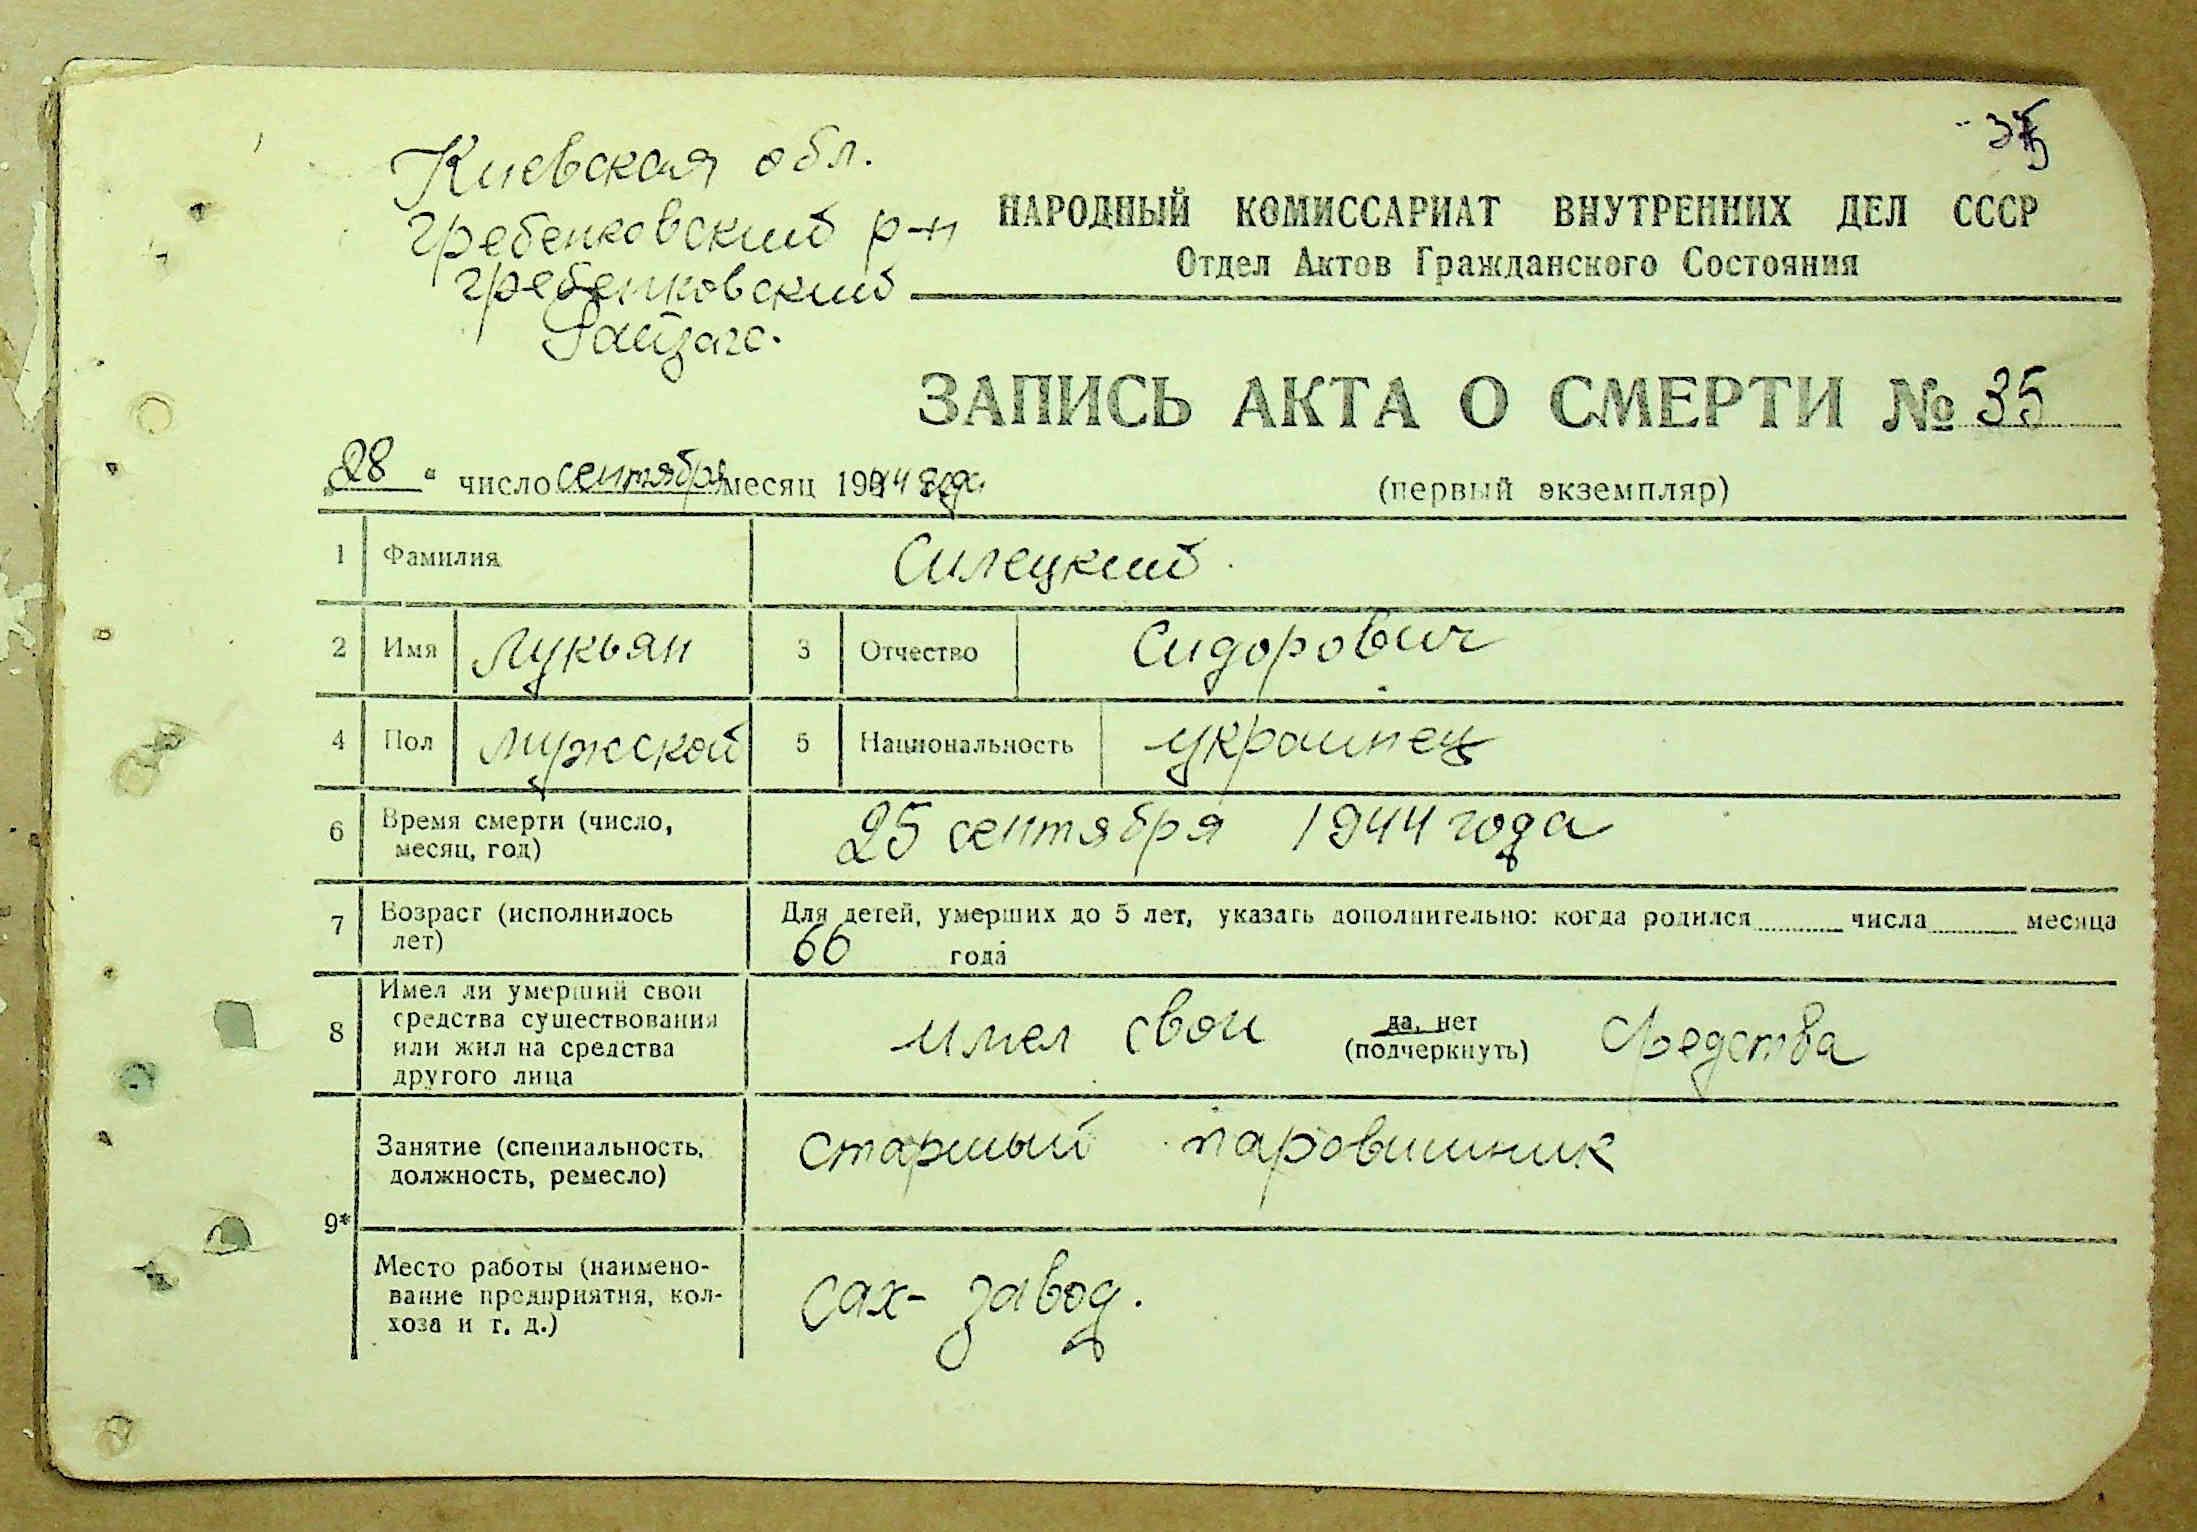 35
Киевская обл.
Гребенковский р-н
Гребенковский
Райзагс.
НАРОДНЫЙ КОМИССАРИАТ ВНУТРЕННИХ ДЕЛ СССР
Отдел Актов Гражданского Состояния
ЗАПИСЬ АКТА О СМЕРТИ № 35
„28“ число сентября месяц 1944 года
(первый экземпляр)
1 Фамилия Силецкий.
2 Имя Лукьян 3 Отчество Сидорович
4 Пол мужской 5 Национальность украинец
6 Время смерти (число, месяц, год) 25 сентября 1944 года
7 Возраст (исполнилось лет) Для детей, умерших до 5 лет, указать дополнительно: когда родился числа месяца
66 года
8 Имел ли умерший свои средства существования или жил на средства другого лица имел свои да, нет (подчеркнуть) средства
9* Занятие (специальность, должность, ремесло) старший паровишник
Место работы (наименование предприятия, колхоза и т. д.) сах-завод.